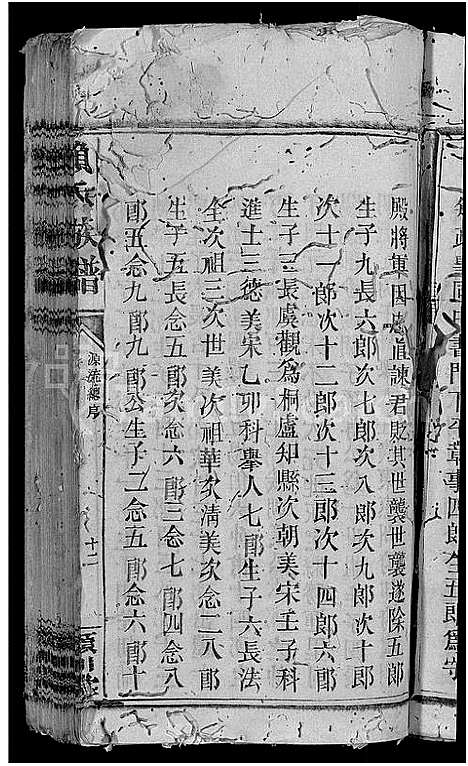 殿將軍因忠直諫君貶其世襲世襲遂除五郎
生子九長六郎次七郎次八郎次九郎次十郎
次十一郎次十二郎次十三郎次十四郎六郎
生子三長虞觀為桐盧知縣次朝美宋壬子科
進士三德美宋乙卯科舉人七郎生子六長法
全次祖三次世美次祖華次清美次念二八郎
生子五長念五郎次念六郎三念七郎四念八
郎五念九郎九郎公生子二念五郎念六郎十
賴氏族譜
源流總序
十二